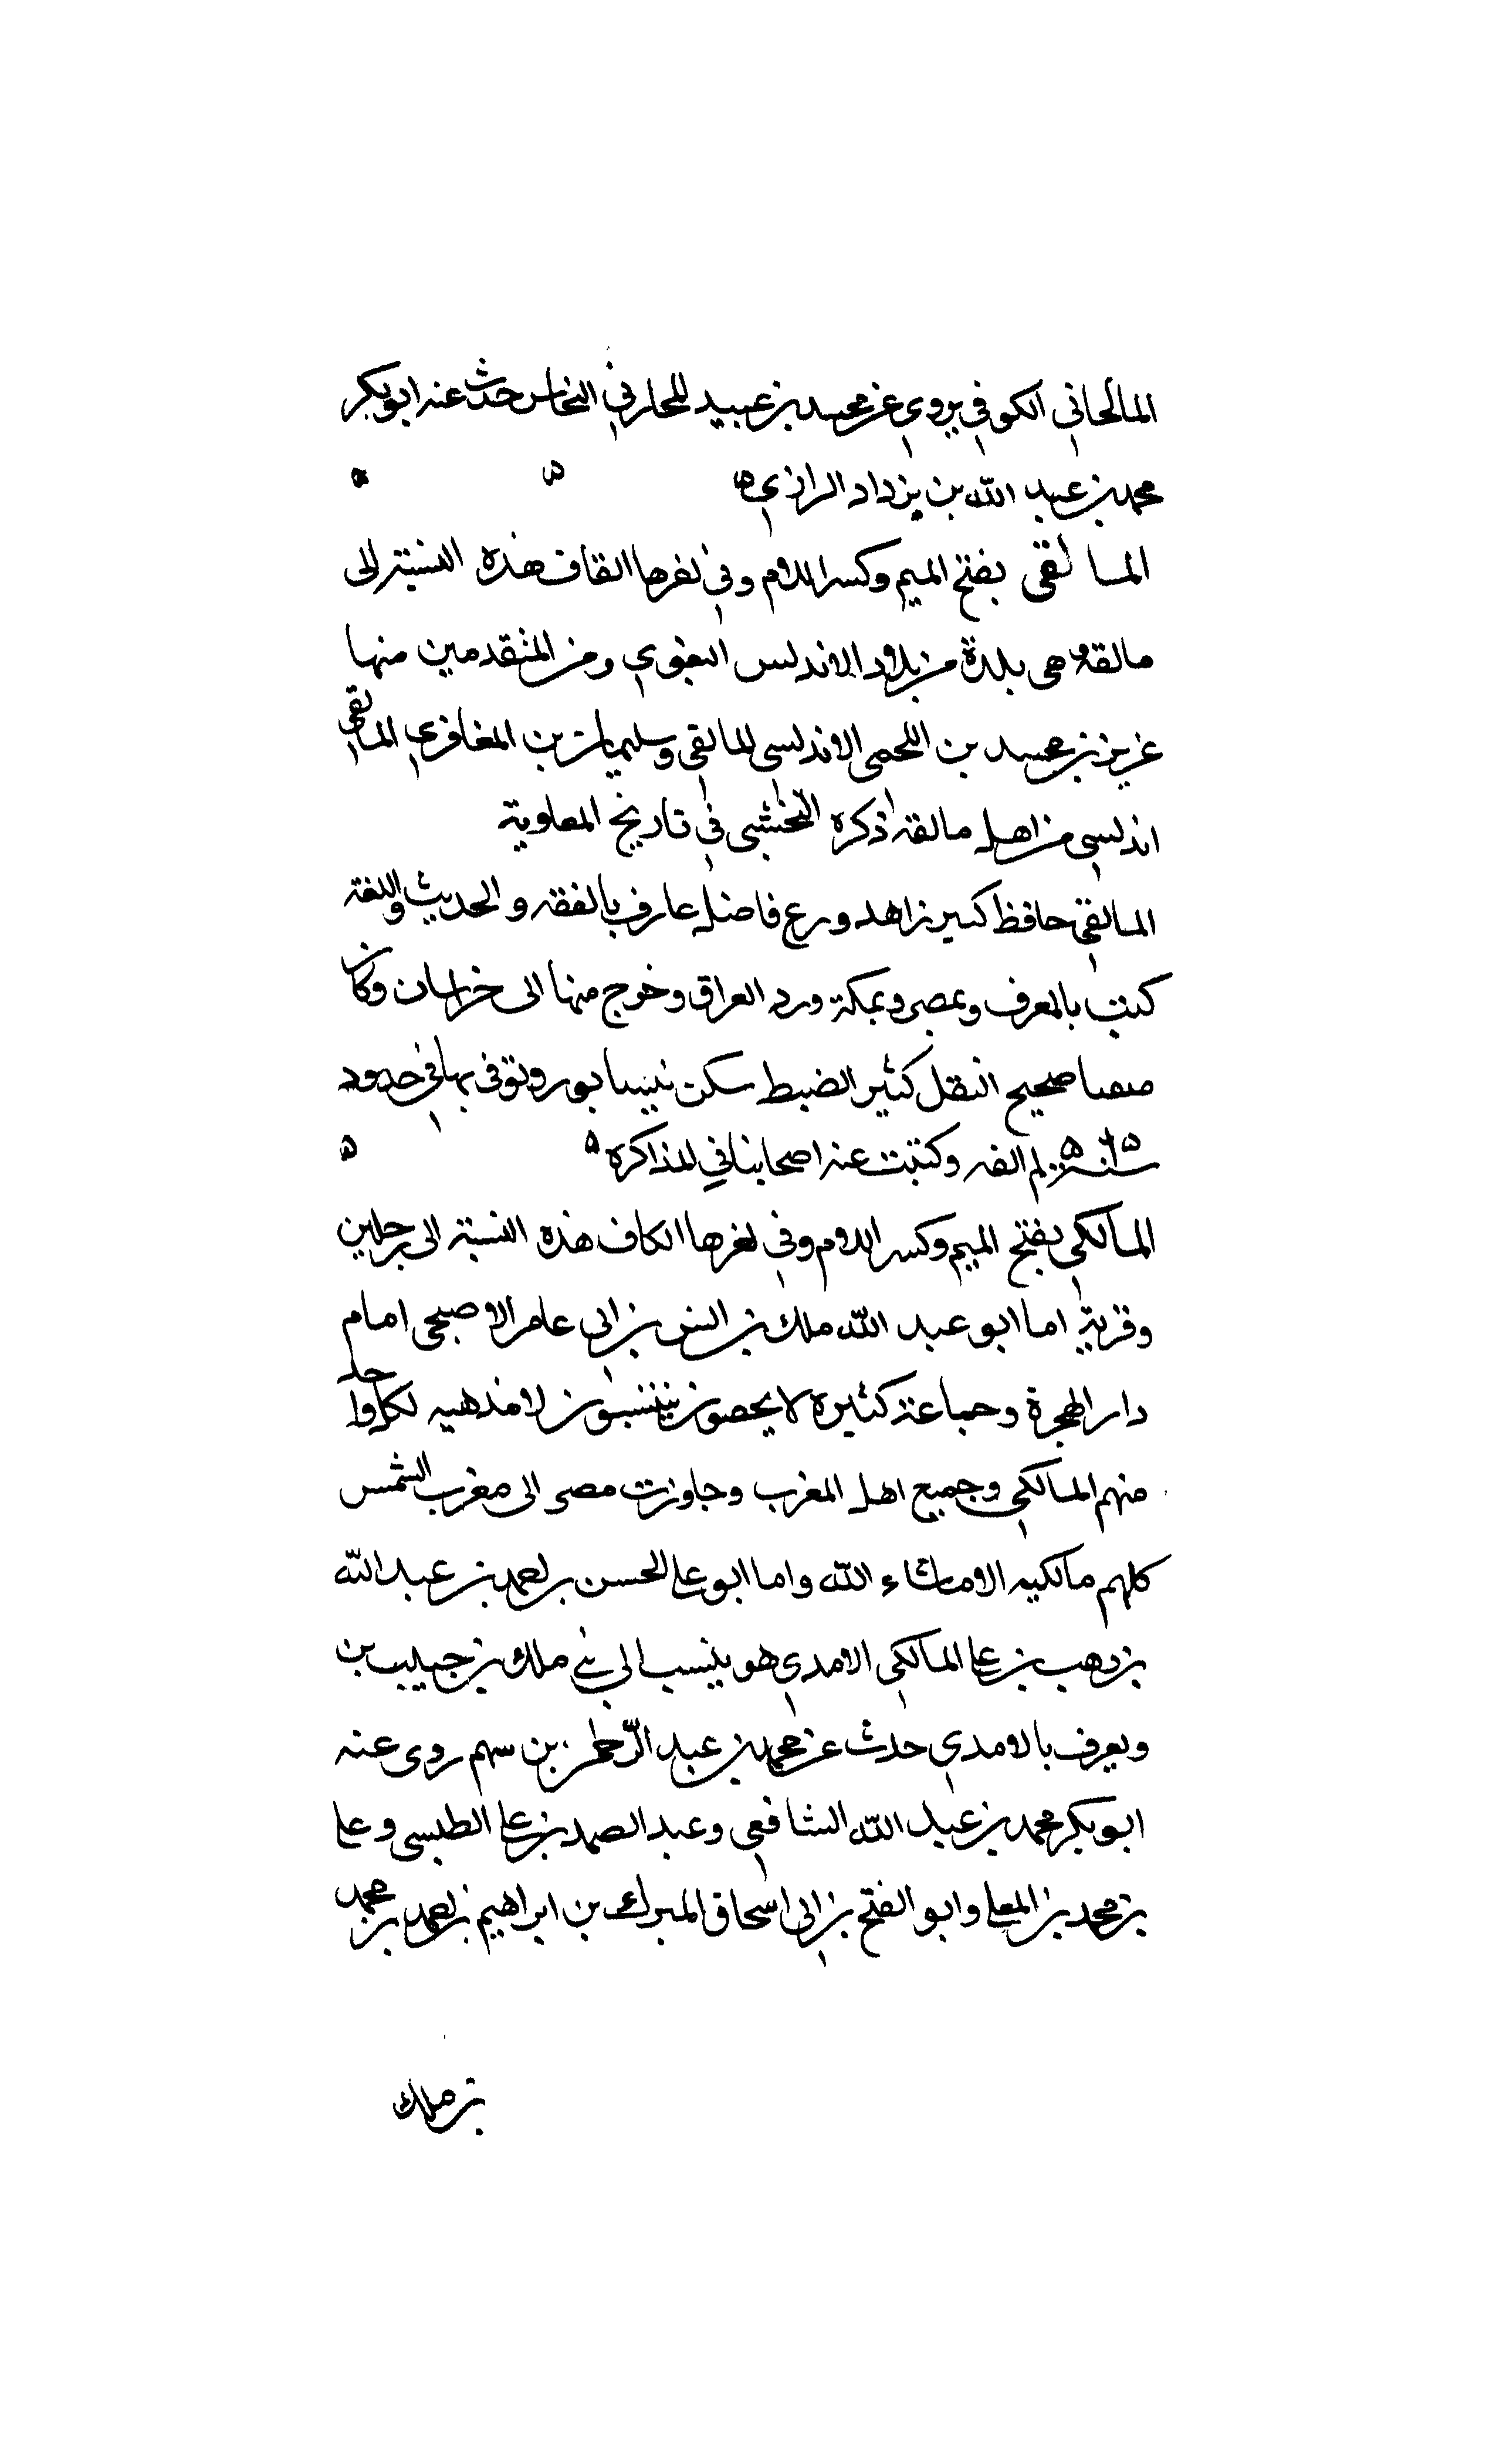 المالحاني الكوفي يروي عن محمد بن عبيد المحاربي النخاس حدث عنه ابو بكر
محمد بن عبد الله بن يزداد الرازي ه
المالقي بفتح الميم وكسر اللام وفي اخرها القاف هذه النسبة الى
مالقة وهي بلدة من بلاد الاندلس ومن المتقدمين منها
عزيز بن محمد بن اللخمي الاندلسي المالقي وسليمان بن المعافري المالقي
اندلسي من اهل مالقة ذكره الخشني في تاريخ المعاوية
المالقي حافظ كبير زاهد ورع فاضل عارف بالفقه والحديث واللغة
كتب بالمغرف وبمصر وبمكة ورد العراق وخرج منها الى خراسان وكان
صحيح النقل كثير الضبط سكن نيسابور وتوفي بها في حدود
سنة لم القه وكتبت عنه اصحابنا في المذاكرة ه
المالكي بفتح الميم وكسر اللام وفي اخرها الكاف هذه النسبة الى رجلين
وقرية اما ابو عبد الله ملك بن انس بن ابي عامر الاصبحي امام
دار الهجرة وجماعة كثيرة لا يحصون ينتسبون لا مذهبه لكل واحد
منهم المالكي وجميع اهل المغرب وجاوزت مصر الى مغرب الشمس
كلهم مالكيه الا ماشاء الله واما ابو علي الحسن بن احمد بن عبد الله
بن وهب بن علي المالكي الامدي هو ينسب الى بني ملك بن حبيب بن
ويعرف بالامدي حدث عن محمد بن عبد الرحمن بن سهم روى عنه
ابو بكر محمد بن عبد الله الشافعي وعبد الصمد بن علي الطبسي وعلي
بن محمد بن المعلي وابو الفتح بن ابي اسحاق المبرك بن ابراهيم بن احمد بن محمد
بن ملك